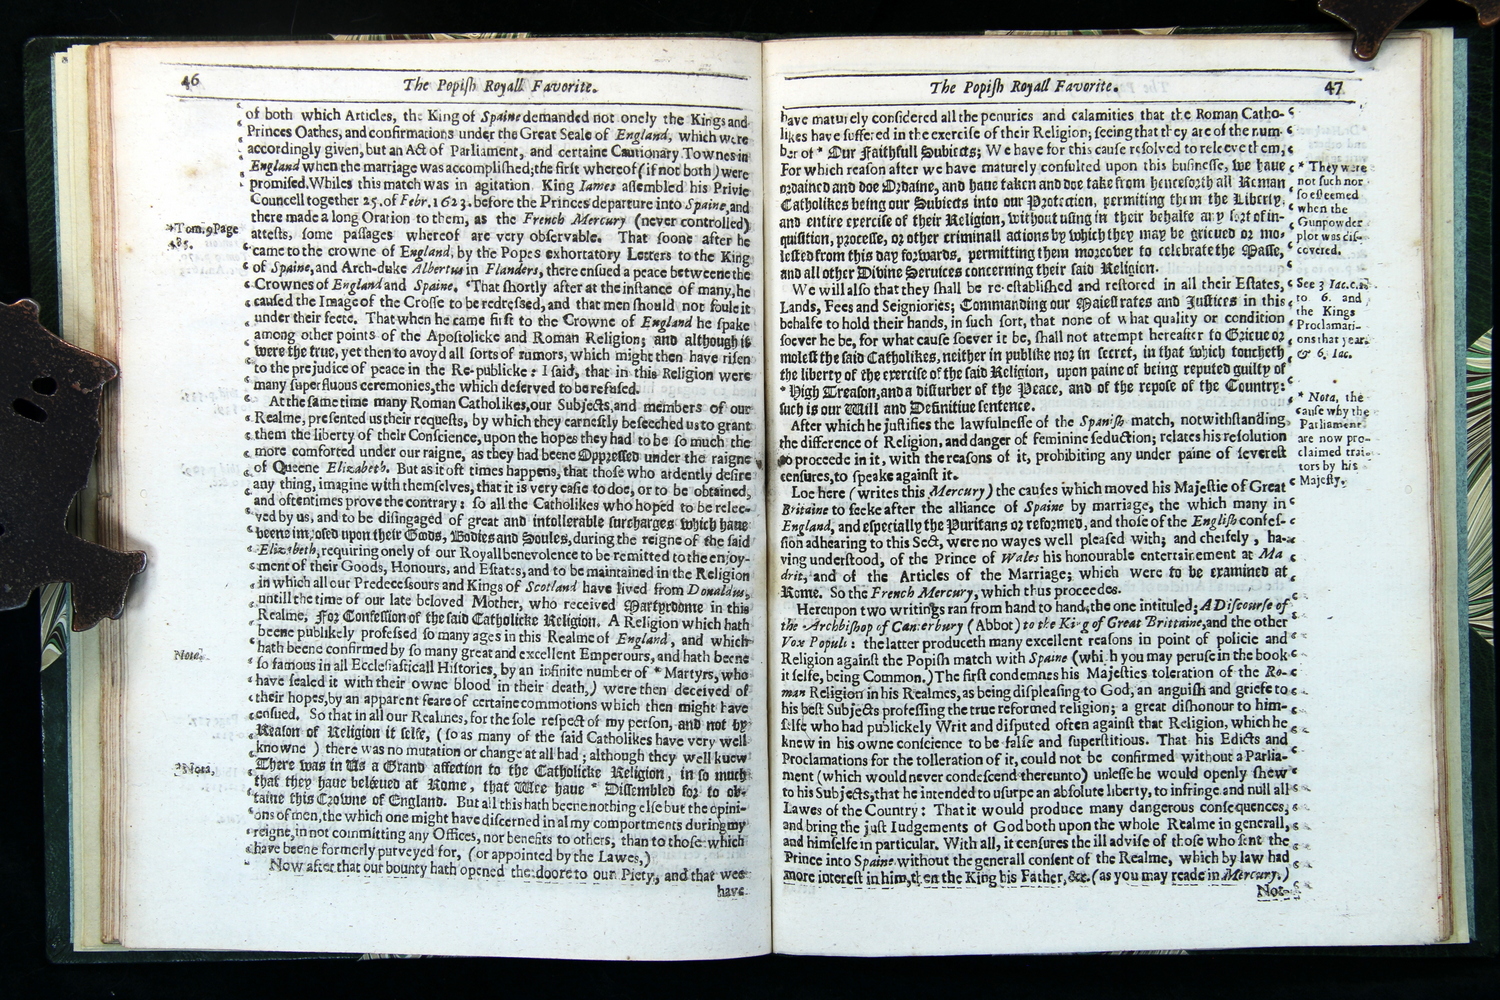 46
The Popiſh Royall Favorite.
of both which Articles, the King of Spaine demanded not onely the Kings and
Princes Oathes, and confirmations under the Great Seale of England, which were
accordingly given, but an Act of Parliament, and certaine Cautionary Townes in
England when the marriage was accompliſhed; the firſt whereof (if not both) were
promiſed. Whiles this match was in agitation, King Iames aſſembled his Privie
Councell together 25. of Febr. 1623. before the Princes departure into Spaine, and
there made a long Oration to them, as the French Mercury (never controlled)
*Tom. 9 Page
485.
atteſts, ſome paſſages whereof are very obſervable. That ſoone after he
came to the crowne of England, by the Popes exhortatory Letters to the King
of Spaine, and Arch-duke Albertus in Flanders, there enſued a peace betweene the
Crownes of England and Spaine. That ſhortly after at the inſtance of many, he
cauſed the Image of the Croſſe to be redreſſed, and that men ſhould not foule it
under their feete. That when he came firſt to the Crowne of England he ſpake
among other points of the Apoſtolicke and Roman Religion; and although it
were the true, yet then to avoyd all ſorts of rumors, which might then have riſen
to the prejudice of peace in the Re-publicke: I ſaid, that in this Religion were
many ſuperfluous ceremonies, the which deſerved to be refuſed.
At the ſame time many Roman Catholikes, our Subjects, and members of our
Realme, preſented us their requeſts, by which they earneſtly beſeeched us to grant
them the liberty of their Conſcience, upon the hopes they had to be ſo much the
more comforted under our raigne, as they had beene Oppreſſed under the raigne
of Queene Elizabeth. But as it oft times happens, that thoſe who ardently deſire
any thing, imagine with themſelves, that it is very eaſie to doe, or to be obtained,
and oftentimes prove the contrary: ſo all the Catholikes who hoped to be relee-
ved by us, and to be diſingaged of great and intollerable ſurcharges which haue
beene impoſed upon their Gods, Bodies and Soules, during the reigne of the ſaid
Elizabeth, requiring onely of our Royall benevolence to be remitted to the enjoy-
ment of their Goods, Honours, and Eſtates, and to be maintained in the Religion
in which all our Predeceſſours and Kings of Scotland have lived from Donaldus,
untill the time of our late beloved Mother, who received Martyrdome in this
Realme, For Confeſſion of the ſaid Catholicke Religion. A Religion which hath
beene publikely profeſſed ſo many ages in this Realme of England, and which
hath beene confirmed by ſo many great and excellent Emperours, and hath beene
Note.
ſo famous in all Eccleſiaſticall Hiſtories, by an infinite number of * Martyrs, who
have ſealed it with their owne blood in their death,) were then deceived of
their hopes, by an apparent feare of certaine commotions which then might have
enſued. So that in all our Realmes, for the ſole reſpect of my perſon, and not by
Reaſon of Religion it ſelfe, (ſo as many of the ſaid Catholikes have very well
knowne ) there was no mutation or change at all had; although they well knew
There was in Us a Grand affection to the Catholicke Religion, in ſo much
*Nota,
that they haue beléeued at Rome, that Wee haue * Diſſembled for to ob-
taine this Crowne of England. But all this hath beene nothing elſe but the opini-
ons of men, the which one might have diſcerned in al my comportments during my
reigne, in not committing any Offices, nor benefits to others, than to thoſe which
have beene formerly purveyed for, (or appointed by the Lawes,)
Now after that our bounty hath opened the doore to our Piety, and that wee
have
The Popiſh Royall Favorite.
47
have maturely conſidered all the penuries and calamities that the Roman Catho-
likes have ſuffered in the exerciſe of their Religion; ſeeing that they are of the num-
ber of * Our Faithfull Subiects; We have for this cauſe reſolved to releeve them,
* They were
not ſuch nor
ſo eſteemed
when the
Gunpowder
plot was diſ-
covered.
For which reaſon after we have maturely conſulted upon this buſineſſe, we haue
ordained and doe Ordaine, and haue taken and doe take from henceforth all Roman
Catholikes being our Subiects into our Protection, permiting them the Liberty
and entire exerciſe of their Religion, without uſing in their behalfe any ſort of in-
quiſition, proceſſe, or other criminall actions by which they may be grieued or mo-
leſted from this day forwards, permitting them moreover to celebrate the Maſſe,
and all other Divine Seruices concerning their ſaid Religion.
We will alſo that they ſhall be re-eſtabliſhed and reſtored in all their Eſtates,
See 3 Iac. c.
to 6. and
the Kings
Proclamati-
ons that year.
& 6. Iac.
Lands, Fees and Seigniories; Commanding our Maieſtrates and Juſtices in this
behalfe to hold their hands, in ſuch ſort, that none of what quality or condition
ſoever he be, for what cauſe ſoever it be, ſhall not attempt hereafter to Grieue or
moleſt the ſaid Catholikes, neither in publike nor in ſecret, in that which toucheth
the liberty of the exerciſe of the ſaid Religion, upon paine of being reputed guilty of
* High Treaſon, and a diſturber of the Peace, and of the repoſe of the Country:
* Nota, the
cauſe why the
Parliament
are now pro-
claimed trai-
tors by his
Majeſty.
ſuch is our Will and Definitiue ſentence.
After which he juſtifies the lawfulneſſe of the Spaniſh match, notwithſtanding
the difference of Religion, and danger of feminine ſeduction; relates his reſolution
to proceede in it, with the reaſons of it, prohibiting any under paine of ſevereſt
cenſures, to ſpeake againſt it.
Loe here (writes this Mercury) the cauſes which moved his Majeſtie of Great
Britaine to ſeeke after the alliance of Spaine by marriage, the which many in
England, and eſpecially the Puritans or reformed, and thoſe of the Engliſh confeſ-
ſion adhearing to this Sect, were no wayes well pleaſed with; and cheifely, ha-
ving underſtood, of the Prince of Wales his honourable entertainement at Ma
drit, and of the Articles of the Marriage; which were to be examined at
Rome. So the French Mercury, which thus proceedes.
Hereupon two writings ran from hand to hand, the one intituled; A Diſcourſe of
the Archbiſhop of Canterbury (Abbot) to the King of Great Brittaine, and the other
Vox Populi: the latter produceth many excellent reaſons in point of policie and
Religion againſt the Popiſh match with Spaine (which you may peruſe in the book
it ſelfe, being Common.) The firſt condemnes his Majeſties toleration of the Ro-
man Religion in his Realmes, as being diſpleaſing to God, an anguiſh and griefe to
his beſt Subjects profeſſing the true reformed religion; a great diſhonour to him-
ſelfe who had publickely Writ and diſputed often againſt that Religion, which he
knew in his owne conſcience to be falſe and ſuperſtitious. That his Edicts and
Proclamations for the tolleration of it, could not be confirmed without a Parlia-
ment (which would never condeſcend thereunto) unleſſe he would openly ſhew
to his Subjects, that he intended to uſurpe an abſolute liberty, to infringe and null all
Lawes of the Country: That it would produce many dangerous conſequences,
and bring the juſt Iudgements of God both upon the whole Realme in generall,
and himſelfe in particular. With all, it cenſures the ill adviſe of thoſe who ſent the
Prince into Spaine without the generall conſent of the Realme, which by law had
more intereſt in him, then the King his Father, &c. (as you may reade in Mercury.)
Not-